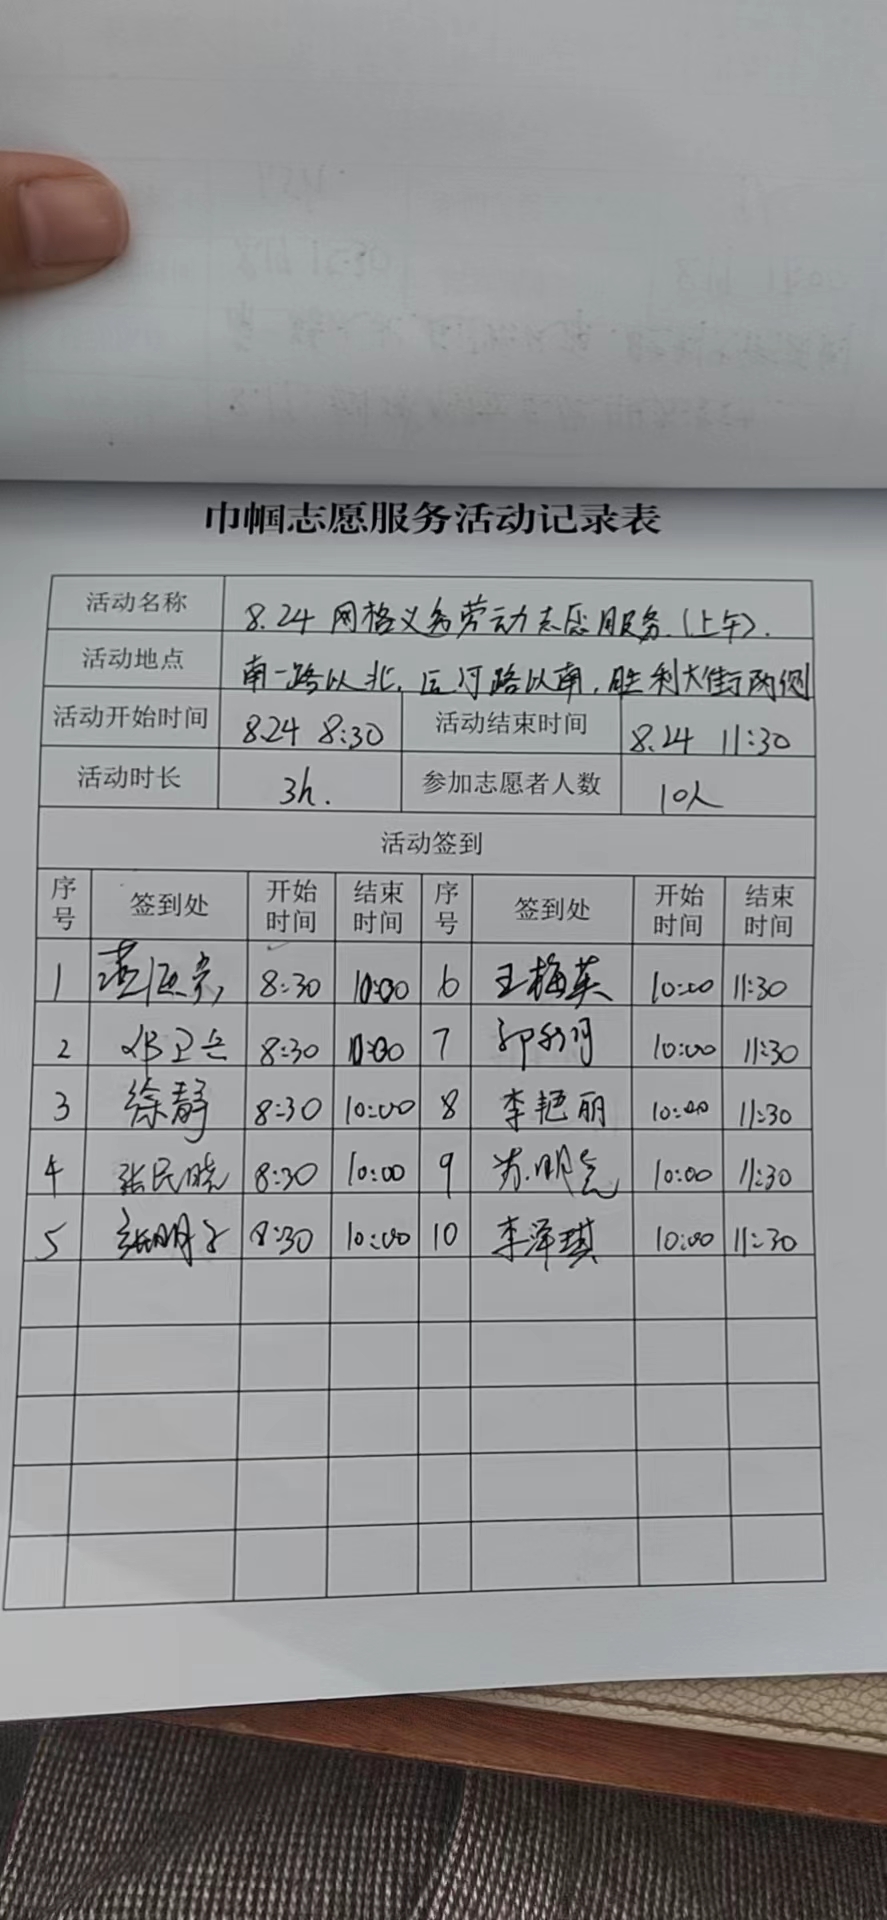 巾帼志愿服务活动记录表
活动名称 8.24 网格义务劳动志愿服务(上午).
活动地点 南一路以北, 后河路以南, 胜利大街两侧
活动开始时间 8.24 8:30 活动结束时间 8.24 11:30
活动时长 3h. 参加志愿者人数 10人
活动签到
序号 签到处 开始时间 结束时间 序号 签到处 开始时间 结束时间
1 8:30 10:00 6 王梅英 10:00 11:30
2 8:30 10:00 7 10:00 11:30
3 徐静 8:30 10:00 8 李艳丽 10:00 11:30
4 张民晓 8:30 10:00 9 10:00 11:30
5 8:30 10:00 10 李泽琪 10:00 11:30